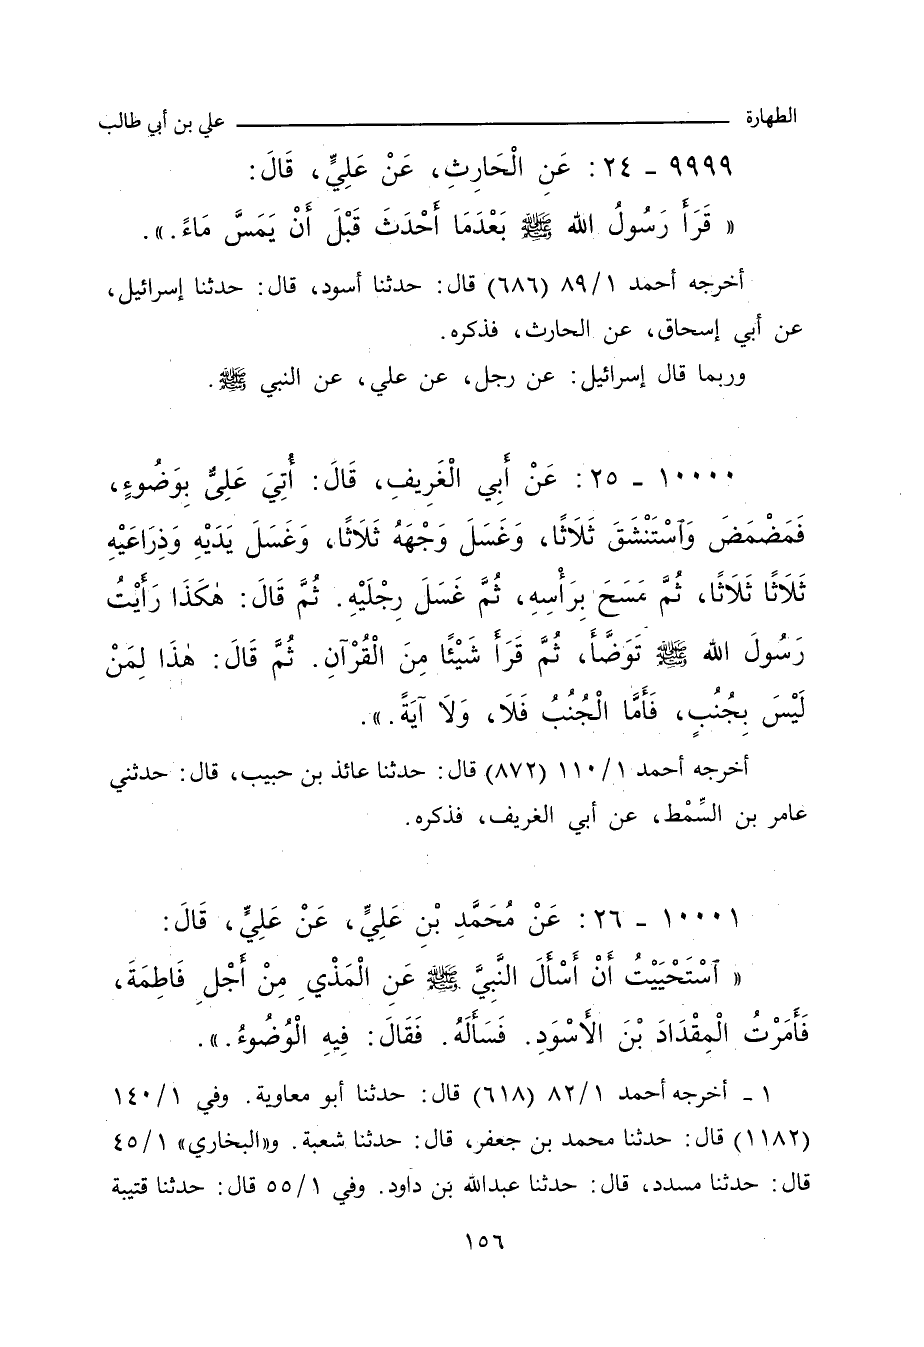 الطهارة علي بن أبي طالب
٩٩٩٩ ـ ٢٤ : عَنِ الْحَارِثِ، عَنْ عَلِيٍّ، قَالَ:
« قَرَأَ رَسُولُ الله ﷺ بَعْدَمَا أَحْدَثَ قَبْلَ أَنْ يَمَسَّ مَاءً.».
أخرجه أحمد ٨٩/١ (٦٨٦) قال: حدثنا أسود، قال: حدثنا إسرائيل،
عن أبي إسحاق، عن الحارث، فذكره.
وربما قال إسرائيل: عن رجل، عن علي، عن النبي ﷺ.
١٠٠٠٠ ـ ٢٥ : عَنْ أَبِي الْغَرِيفِ، قَالَ: أُتِيَ عَلِيٌّ بِوَضُوءٍ،
فَمَضْمَضَ وَٱسْتَنْشَقَ ثَلَاثًا، وَغَسَلَ وَجْهَهُ ثَلَاثًا، وَغَسَلَ يَدَيْهِ وَذِرَاعَيْهِ
ثَلَاثًا ثَلَاثًا، ثُمَّ مَسَحَ بِرَأْسِهِ، ثُمَّ غَسَلَ رِجْلَيْهِ. ثُمَّ قَالَ: هٰكَذَا رَأَيْتُ
رَسُولَ الله ﷺ تَوَضَّأَ، ثُمَّ قَرَأَ شَيْئًا مِنَ الْقُرْآنِ. ثُمَّ قَالَ: هٰذَا لِمَنْ
لَيْسَ بِجُنُبٍ، فَأَمَّا الْجُنُبُ فَلَا، وَلَا آيَةً.».
أخرجه أحمد ١١٠/١ (٨٧٢) قال: حدثنا عائذ بن حبيب، قال: حدثني
عامر بن السِّمْط، عن أبي الغريف، فذكره.
١٠٠٠١ ـ ٢٦ : عَنْ مُحَمَّدِ بْنِ عَلِيٍّ، عَنْ عَلِيٍّ، قَالَ:
« ٱسْتَحْيَيْتُ أَنْ أَسْأَلَ النَّبِيَّ ﷺ عَنِ الْمَذْيِ مِنْ أَجْلِ فَاطِمَةَ،
فَأَمَرْتُ الْمِقْدَادَ بْنَ الأَسْوَدِ. فَسَأَلَهُ. فَقَالَ: فِيهِ الْوُضُوءُ.».
١ ـ أخرجه أحمد ٨٢/١ (٦١٨) قال: حدثنا أبو معاوية. وفي ١٤٠/١
(١١٨٢) قال: حدثنا محمد بن جعفر، قال: حدثنا شعبة. و«البخاري» ٤٥/١
قال: حدثنا مسدد، قال: حدثنا عبدالله بن داود. وفي ٥٥/١ قال: حدثنا قتيبة
١٥٦